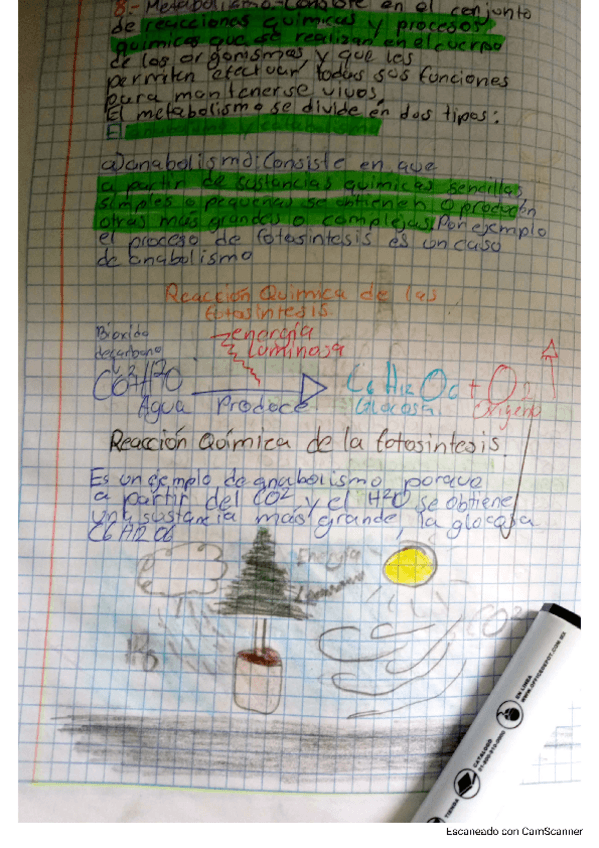 8.- Metabolismo-Consiste en el conjunto
de reacciones químicas y procesos
químicos que se realizan en el cuerpo
de los organismos, y que les
permiten efectuar, todas sus funciones
para mantenerse vivos.
El metabolismo se divide en dos tipos:
El anabolismo y catabolismo
a) anabolismo: Consiste en que
a partir de sustancias químicas sencillas
simples o pequeñas se obtienen o producen
otras más grandes o complejas. Por ejemplo
el proceso de fotosíntesis es un caso
de anabolismo
Reacción Química de las
fotosíntesis.
Bioxido
de carbono
energía
luminosa
CO2+H2O
C6 H12 O6 + O2
Agua Produce Glucosa Oxigeno
Reacción Química de la fotosíntesis.
Es un ejemplo de anabolismo porque
a partir del CO2 y el H2O se obtiene
una sustancia más grande, la glocosa
C6 H12 O6
Energía
Luminosa
CO2
H2O
EN LINEA
WWW.OFFICEDEPOT.COM.MX
CATALOGO
TIENDA
Escaneado con CamScanner